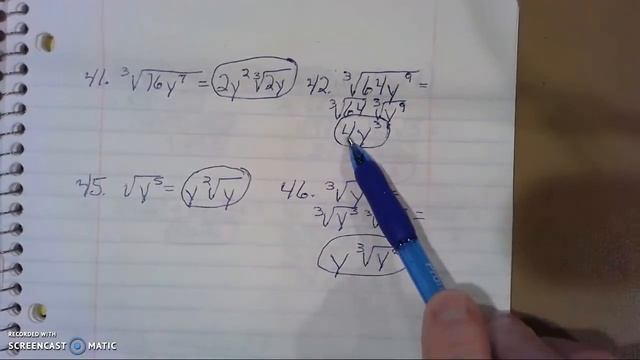 41. ∛16y⁷ = 2y²∛2y
42. ∛64y⁹ =
∛64 ∛y⁹
4y³
45. √y⁵ =
46. ∛y
∛y³ ∛ =
y ∛y
RECORDED WITH
SCREENCAST MATIC